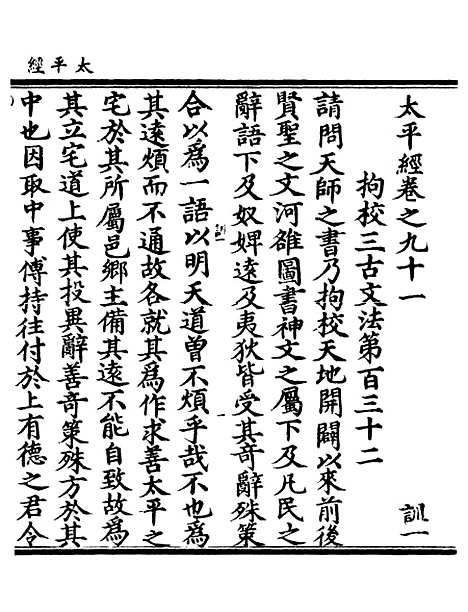 太平經
太平經卷之九十一
訓一
拘校三古文法第百三十二
請問天師之書乃拘校天地開闢以來前後
賢聖之文河雒圖書神文之屬下及凡民之
辭語下及奴婢遠及夷狄皆受其奇辭殊策
合以爲一語以明天道曽不煩乎哉不也爲
其遠煩而不通故各就其爲作求善太平之
宅於其所屬邑鄉主備其遠不能自致故爲
其立宅道上使其投異辭善奇策殊方於其
中也因取中事傅持往付於上有德之君令